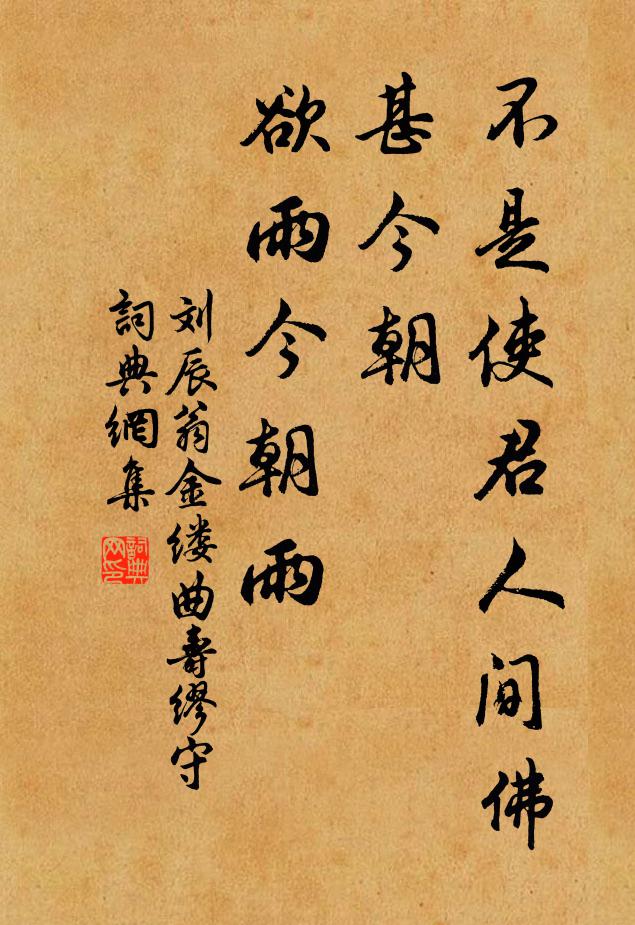 不是使君人间佛
甚今朝
欲雨今朝雨
刘辰翁金缕曲壽缪守
詞典網集
詞典网印